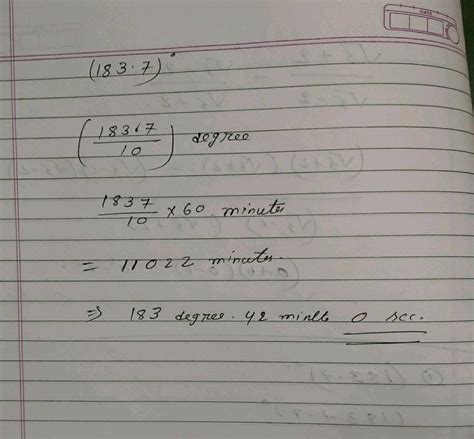 DATE
(183.7)°
(1837/10) degree
1837/10 × 60 minutes
= 11022 minutes.
⇒ 183 degree. 42 minute 0 sec.